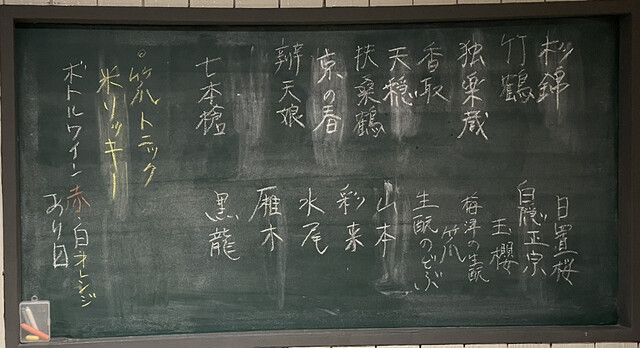 杉錦
竹鶴
独楽蔵
香取
天穏
扶桑鶴
京の春
辨天娘
七本槍
日置桜
白隠正宗
玉櫻
梅津の生酛
竹爪
生酛のどぶ
山本
彩来
水尾
雁木
黒龍
竹爪トニック
米リッキー
ボトルワイン赤・白オレンジ
あり〼